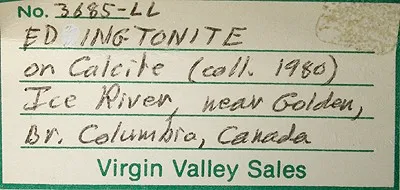 No. 3685-LL
EDINGTONITE
on Calcite (coll. 1980)
Ice River, near Golden,
Br. Columbia, Canada
Virgin Valley Sales